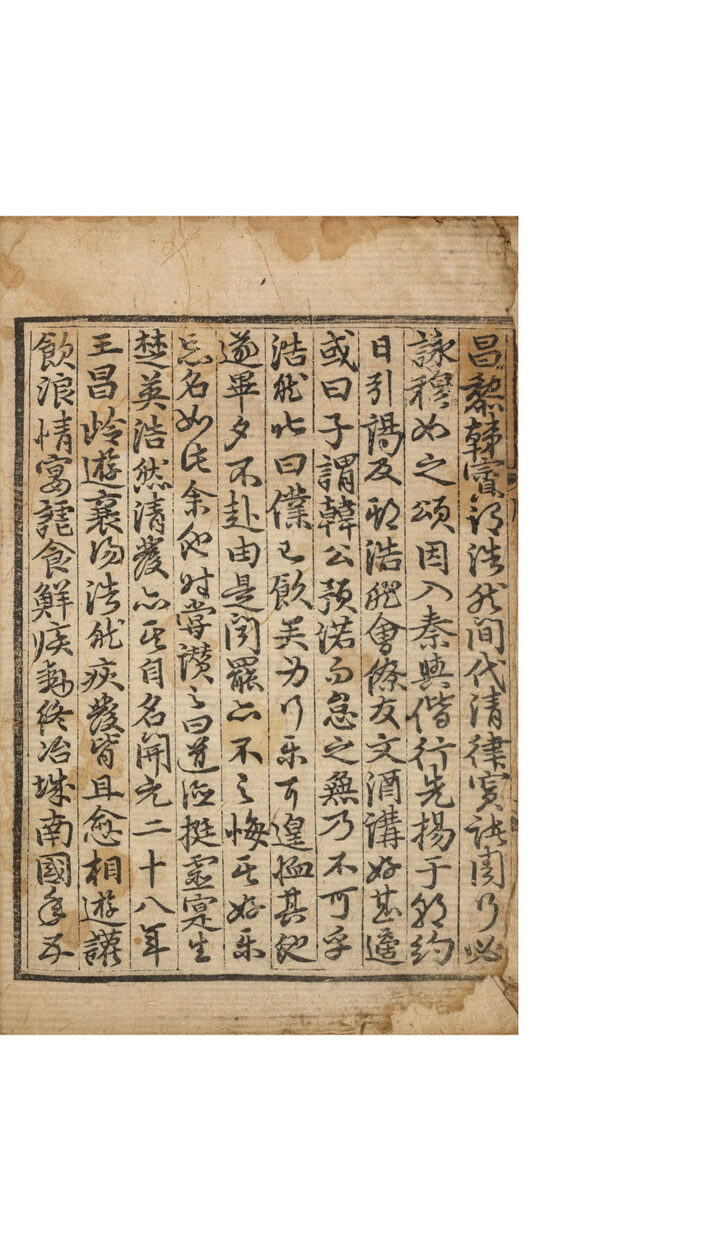 昌黎韓賓浩然間代清律寘諸周行必
詠穆如之頌因入秦與偕行先揚于朝約
日引謁及期浩然會僚友文酒講好甚適
或曰子謂韓公預諾而怠之無乃不可乎
浩然叱曰僕已飲矣身行樂耳遑恤其他
遂畢夕不赴由是閒罷亦不之悔其好樂
忘名如此余他时嘗讃之曰道漾挺靈寔生
楚英浩然清發亦其自名開元二十八年
王昌岭遊襄陽浩然疾發背且愈相遊讙
飲浪情宴謔食鮮疾動終冶城南國年五